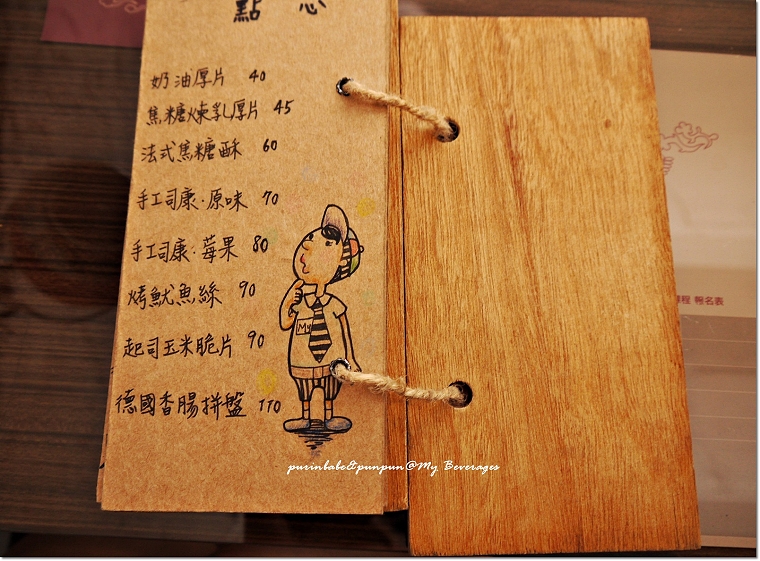 點心
奶油厚片 40
焦糖煉乳厚片 45
法式焦糖酥 60
手工司康·原味 70
手工司康·莓果 80
烤魷魚絲 90
起司玉米脆片 90
德國香腸拼盤 170
My
程 報名表
purinbabe&punpun@My Beverages